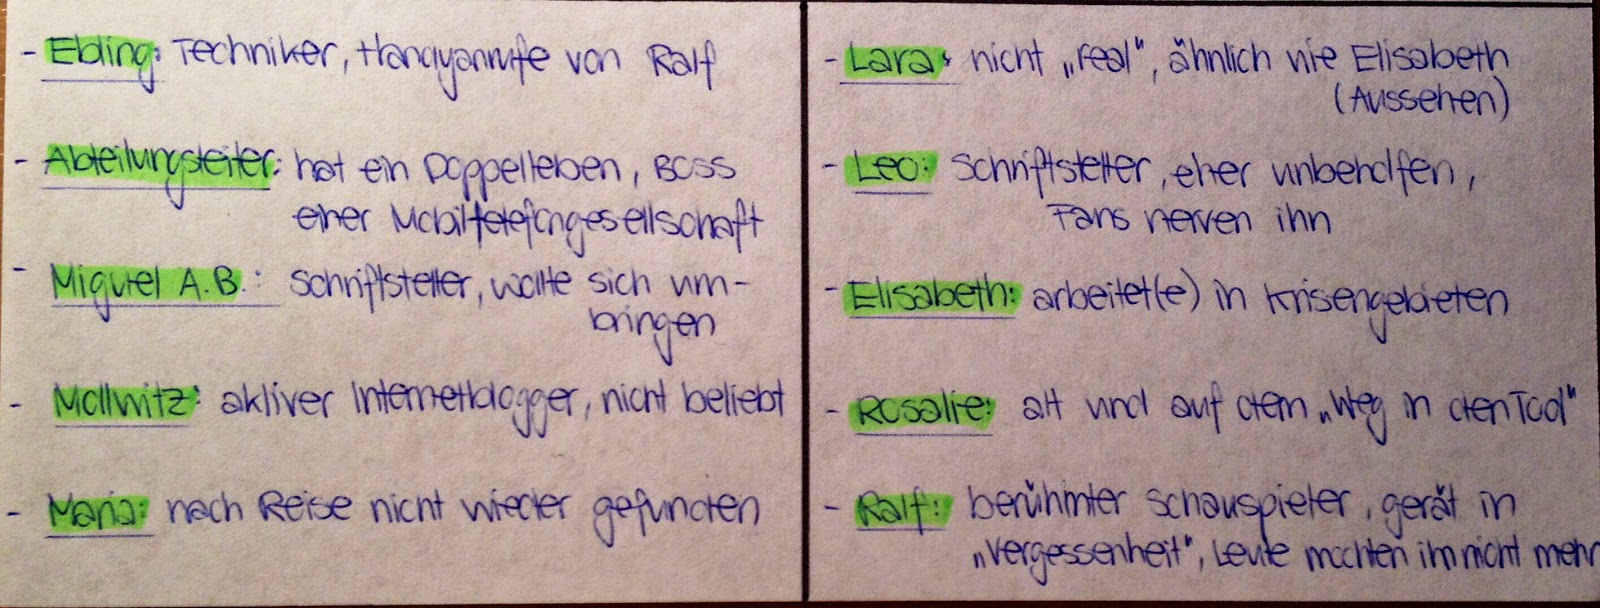 - Ebling: Techniker, Handyanrufe von Ralf
- Abteilungsleiter: hat ein Doppelleben, Boss
einer Mobiltelefongesellschaft
- Miguel A.B.: Schriftsteller, wollte sich um-
bringen
- Mollwitz: aktiver Internetblogger, nicht beliebt
- Maria: nach Reise nicht wieder gefunden
- Lara: nicht „real", ähnlich wie Elisabeth
(Aussehen)
- Leo: Schriftsteller, eher unbeholfen,
Fans nerven ihn
- Elisabeth: arbeitet(e) in Krisengebieten
- Rosalie: alt und auf dem „Weg in den Tod"
- Ralf: berühmter Schauspieler, gerät in
„Vergessenheit", Leute mochten ihn nicht mehr